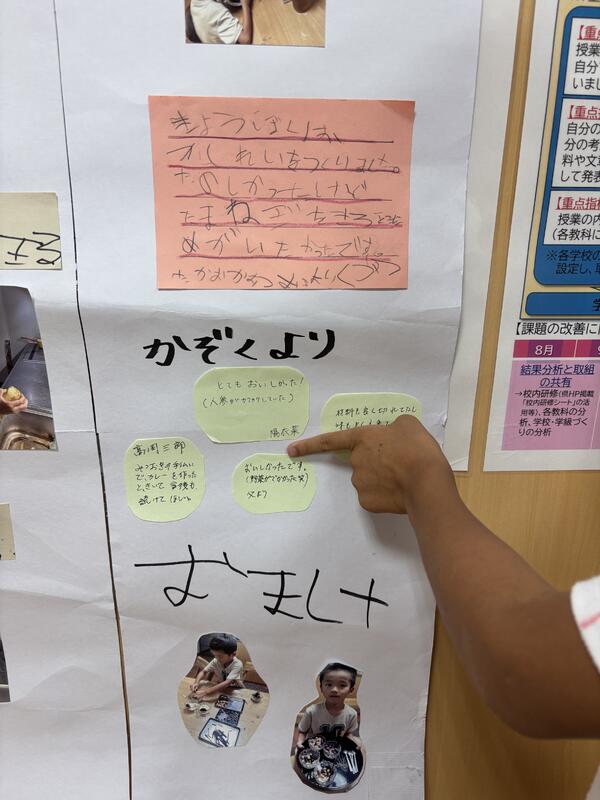 きょうぼくは、
かしれいをつくりました。
たのしかったけど
たまねぎをきると
めがいたかったです。
かぞくより
とてもおいしかった!
(人参がカタカリしていた)
陽衣菜
材料も良く切れてたし
みつおきの手伝い
で、カレーを作った
ときいて 今後も
続けてほしい。
おいしかったです。
(野菜がでかかった笑)
父より
おまけ
【重点
授業
自分で
いまし
【重点指
自分の
分の考
料や文章
して発表
【重点指標
授業の内
(各教科に
※各学校の
設定し、
【課題の改善に
8月
結果分析と取組
の共有
→校内研修(県HP掲載
「校内研修シート」の活
用等)、各教科の分
析、学校・学級づく
りの分析